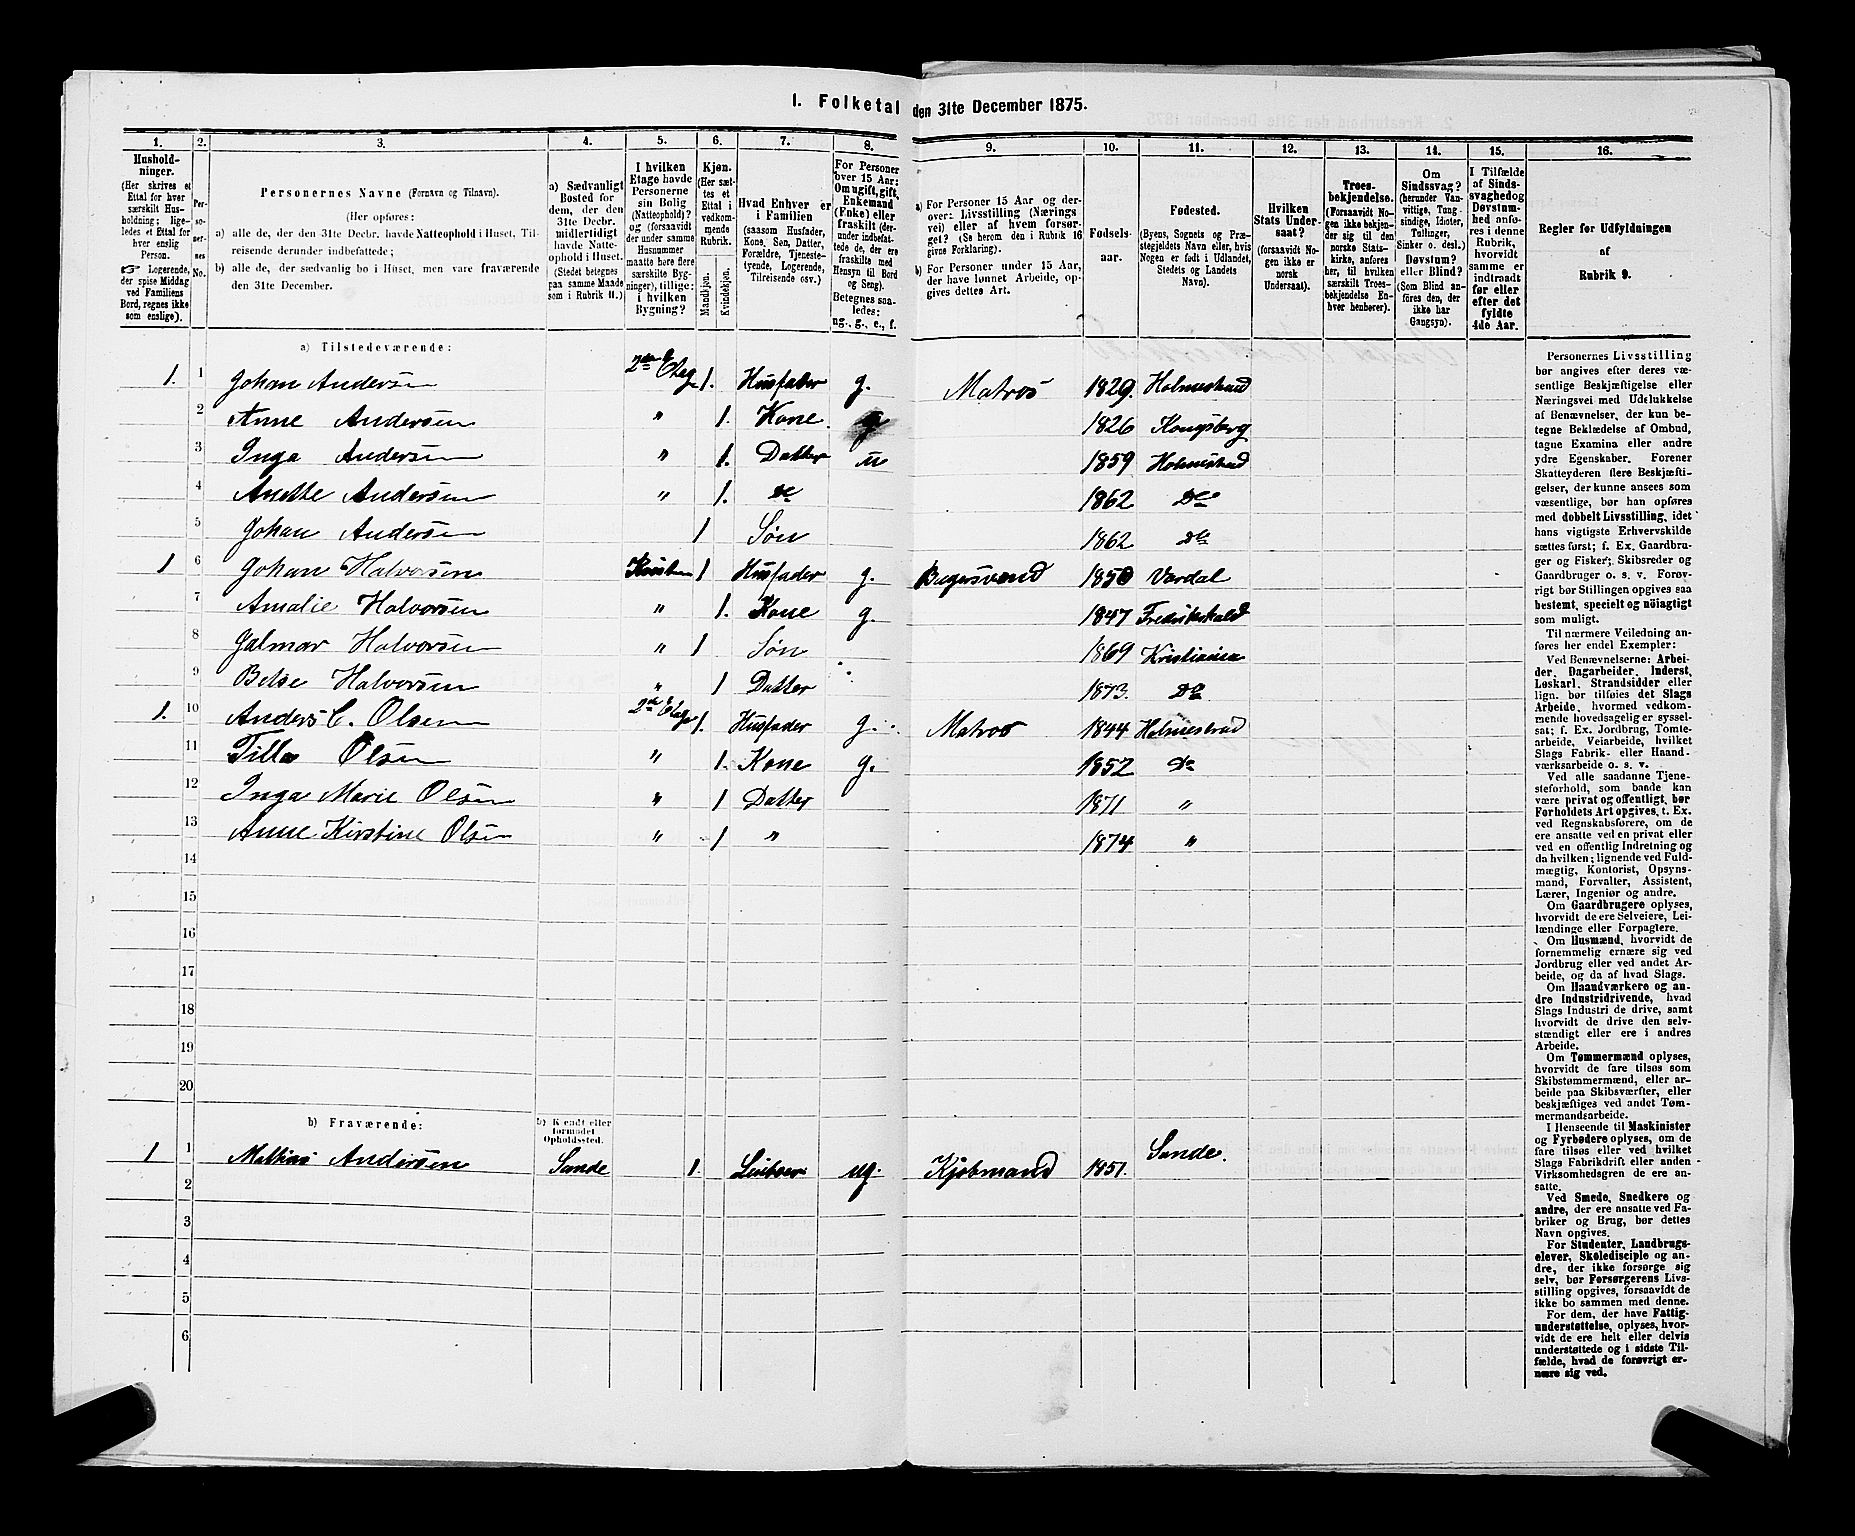 1. Folketal den 31te December 1875.
1. 2. 3. 4. 5. 6. 7. 8. 9. 10. 11. 12. 13. 14. 15. 16.
Husholdninger.
(Her skrives et Ettal for hver særskilt Husholdning; ligeledes et Ettal for hver enslig Person.
☞ Logerende, der spise Middag ved Familiens Bord, regnes ikke som enslige).
Personernes No.
Personernes Navne (Fornavn og Tilnavn).
(Her opføres:
a) alle de, der den 31te Decbr. havde Natteophold i Huset, Tilreisende derunder indbefattede;
b) alle de, der sædvanlig bo i Huset, men vare fraværende den 31te December.
a) Sædvanligt Bosted for dem, der den 31te Decbr. midlertidigt havde Natteophold i Huset. (Stedet betegnes paa samme Maade som i Rubrik 11.)
I hvilken Etage havde Personerne sin Bolig (Natteophold)? og (forsaavidt der under samme Husnummer maatte høre flere særskilte Bygninger), tillige: i hvilken Bygning?
Kjøn. (Her sættes et Ettal i vedkommende Rubrik.
Mandkjøn. Kvindekjøn.
Hvad Enhver er i Familien (saasom Husfader, Kone, Søn, Datter, Forældre, Tjenestetyende, Logerende, Tilreisende osv.)
For Personer over 15 Aar: Om ugift, gift, Enkemand (Enke) eller fraskilt (derunder indbefattede de, der ere fraskilte med Hensyn til Bord og Seng). Betegnes saaledes: ug., g., e., f.
a) For Personer 15 Aar og derover: Livsstilling (Næringsvei) eller af hvem forsørget? (Se herom den i Rubrik 16 givne Forklaring).
b) For Personer under 15 Aar, der have lønnet Arbeide, opgives dettes Art.
Fødselsaar.
Fødested. (Byens, Sognets og Præstegjeldets Navn eller, hvis Nogen er født i Udlandet, Stedets og Landets Navn).
Hvilken Stats Undersaat? (forsaavidt Nogen ikke er norsk Undersaat).
Troesbekjendelse. (Forsaavidt Nogen ikke bekjender sig til den norske Statskirke, anføres her, til hvilken særskilt Troesbekjendelse Enhver henhører).
Om Sindssvag? (herunder Vanvittige, Tungsindige, Idioter, Tullinger, Sinker o. desl.) Døvstum? eller Blind? (Som Blind anføres den, der ikke har Gangsyn).
I Tilfælde af Sindssvaghed og Døvstumhed anføres i denne Rubrik, hvorvidt samme er indtraadt før eller efter det fyldte 4de Aar.
Regler for Udfyldningen af Rubrik 9.
a) Tilstedeværende:
1. 1 Johan Andersen 2den Etage 1. Husfader g. Matros 1829. Holmestrand
2 Anne Andersen " 1. Kone. g 1826 Kongsberg
3 Inga Andersen " 1. Datter u 1859 Holmestrand
4 Anette Andersen " 1. Do 1862 Do
5 Johan Andersen 1 Søn 1862 Do
1 6 Johan Halvorsen 1 Husfader g. Bagersvend 1850 Vardal
7 Amalie Halvorsen " 1. Kone g. 1847 Fredrikshald
8 Hjalmar Halvorsen " 1 Søn 1869 Kristiania
9 Betse Halvorsen " 1 Datter 1873. Do
1. 10 Anders C. Olsen 2den Etage 1. Husfader g. Matros 1844 Holmestrand
11 Tilla Olsen " 1. Kone g. 1852 Do
12 Inga Marie Olsen " 1 Datter 1871 "
13 Anne Kirstine Olsen " 1 " 1874 "
14
15
16
17
18
19
20
b) Fraværende: b) Kjendt eller formodet Opholdssted.
1 1 Mathias Andersen Sande 1. ug. Kjøbmand 1851. Sande.
2
3
4
5
6
Personernes Livsstilling
bør angives efter deres væ-
sentlige Beskjæftigelse eller
Næringsvei med Udelukkelse
af Benævnelser, der kun be-
tegne Beklædelse af Ombud,
tagne Examina eller andre
ydre Egenskaber. Forener
Skatteyderen flere Beskjæfti-
gelser, der kunne ansees som
væsentlige, bør han opføres
med dobbelt Livsstilling, idet
hans vigtigste Erhvervskilde
sættes først; f. Ex. Gaardbru-
ger og Fisker; Skibsreder og
Gaardbruger o. s. v. Forøv-
rigt bør Stillingen opgives saa
bestemt, specielt og nöiagtigt
som muligt.
Til nærmere Veiledning an-
føres her endel Exempler:
Ved Benævnelserne: Arbei-
der, Dagarbeider, Inderst,
Løskarl, Strandsidder eller
lign. bør tilføies det Slags
Arbeide, hvormed vedkom-
mende hovedsagelig er syssel-
sat; f. Ex. Jordbrug, Tomte-
arbeide, Veiarbeide, hvilket
Slags Fabrik- eller Haand-
værksarbeide o. s. v.
Ved alle saadanne Tjene-
steforhold, som baade kan
være privat og offentligt, bør
Forholdets Art opgives, t. Ex.
ved Regnskabsførere, om de
ere ansatte ved en privat eller
ved en offentlig Indretning og
da hvilken; lignende ved Fuld-
mægtig, Kontorist, Opsyns-
mand, Forvalter, Assistent,
Lærer, Ingeniør og andre.
Om Gaardbrugere oplyses,
hvorvidt de ere Selveiere, Lei-
lændinge eller Forpagtere.
Om Husmænd, hvorvidt de
fornemmelig ernære sig ved
Jordbrug eller ved andet Ar-
beide, og da af hvad Slags.
Om Haandværkere og an-
dre Industridrivende, hvad
Slags Industri de drive, samt
hvorvidt de drive den selv-
stændigt eller ere i andres
Arbeide.
Om Tømmermænd oplyses,
hvorvidt de fare tilsøs som
Skibstømmermænd, eller ar-
beide paa Skibsværfter, eller
beskjæftiges ved andet Tøm-
mermandsarbeide.
I Henseende til Maskinister
og Fyrbødere oplyses, om de
fare tilsøs eller ved hvilket
Slags Fabrikdrift eller anden
Virksomhedsgren de ere an-
satte.
Ved Smede, Snedkere og
andre, der ere ansatte ved Fa-
briker og Brug, bør dettes
Navn opgives.
For Studenter, Landbrugs-
elever, Skoledisciple og an-
dre, der ikke forsørge sig
selv, bør Forsørgerens Livs-
stilling opgives, forsaavidt de
ikke bo sammen med denne.
For dem, der have Fattig-
understøttelse, oplyses, hvor-
vidt de ere helt eller delvis
understøttede og i sidste Til-
fælde, hvad de forøvrigt er-
nære sig ved.